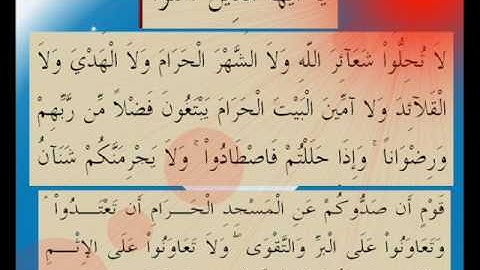 يَا أَيُّهَا الَّذِينَ آمَنُواْ
لاَ تُحِلُّواْ شَعَآئِرَ اللّهِ وَلاَ الشَّهْرَ الْحَرَامَ وَلاَ الْهَدْيَ وَلاَ
الْقَلآئِدَ وَلا آمِّينَ الْبَيْتَ الْحَرَامَ يَبْتَغُونَ فَضْلاً مِّن رَّبِّهِمْ
وَرِضْوَانًا ۚ وَإِذَا حَلَلْتُمْ فَاصْطَادُواْ ۚ وَلاَ يَجْرِمَنَّكُمْ شَنَآنُ
قَوْمٍ أَن صَدُّوكُمْ عَنِ الْمَسْجِدِ الْحَرَامِ أَن تَعْتَدُواْ ۘ
وَتَعَاوَنُواْ عَلَى الْبرِّ وَالتَّقْوَى ۖ وَلاَ تَعَاوَنُواْ عَلَى الإِثْمِ